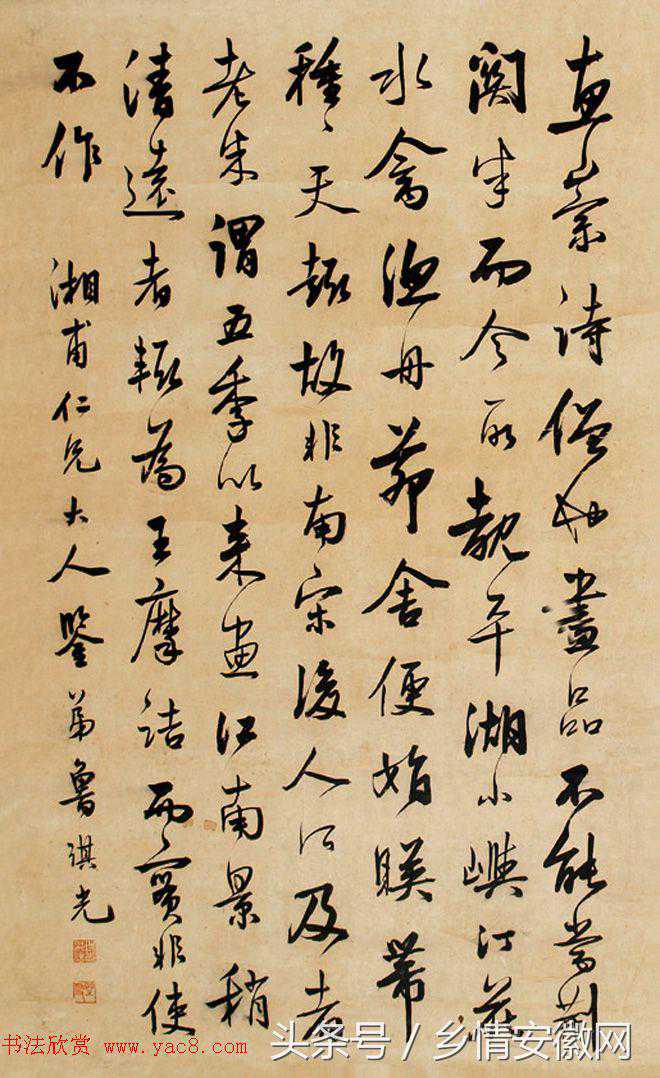 惠崇詩僧也畫品不能當荆
關半而今所覩平湖小嶼汀花
水禽漁舟茆舍便娟映帶
種〻天趣故非南宋後人所及者
老米謂五季以来畫江南景稍
清遠者輒為王摩詰而實非使
不作 湘甫仁兄大人鑒 弟魯琪光
书法欣赏 www.yac8.com
头条号 / 乡情安徽网